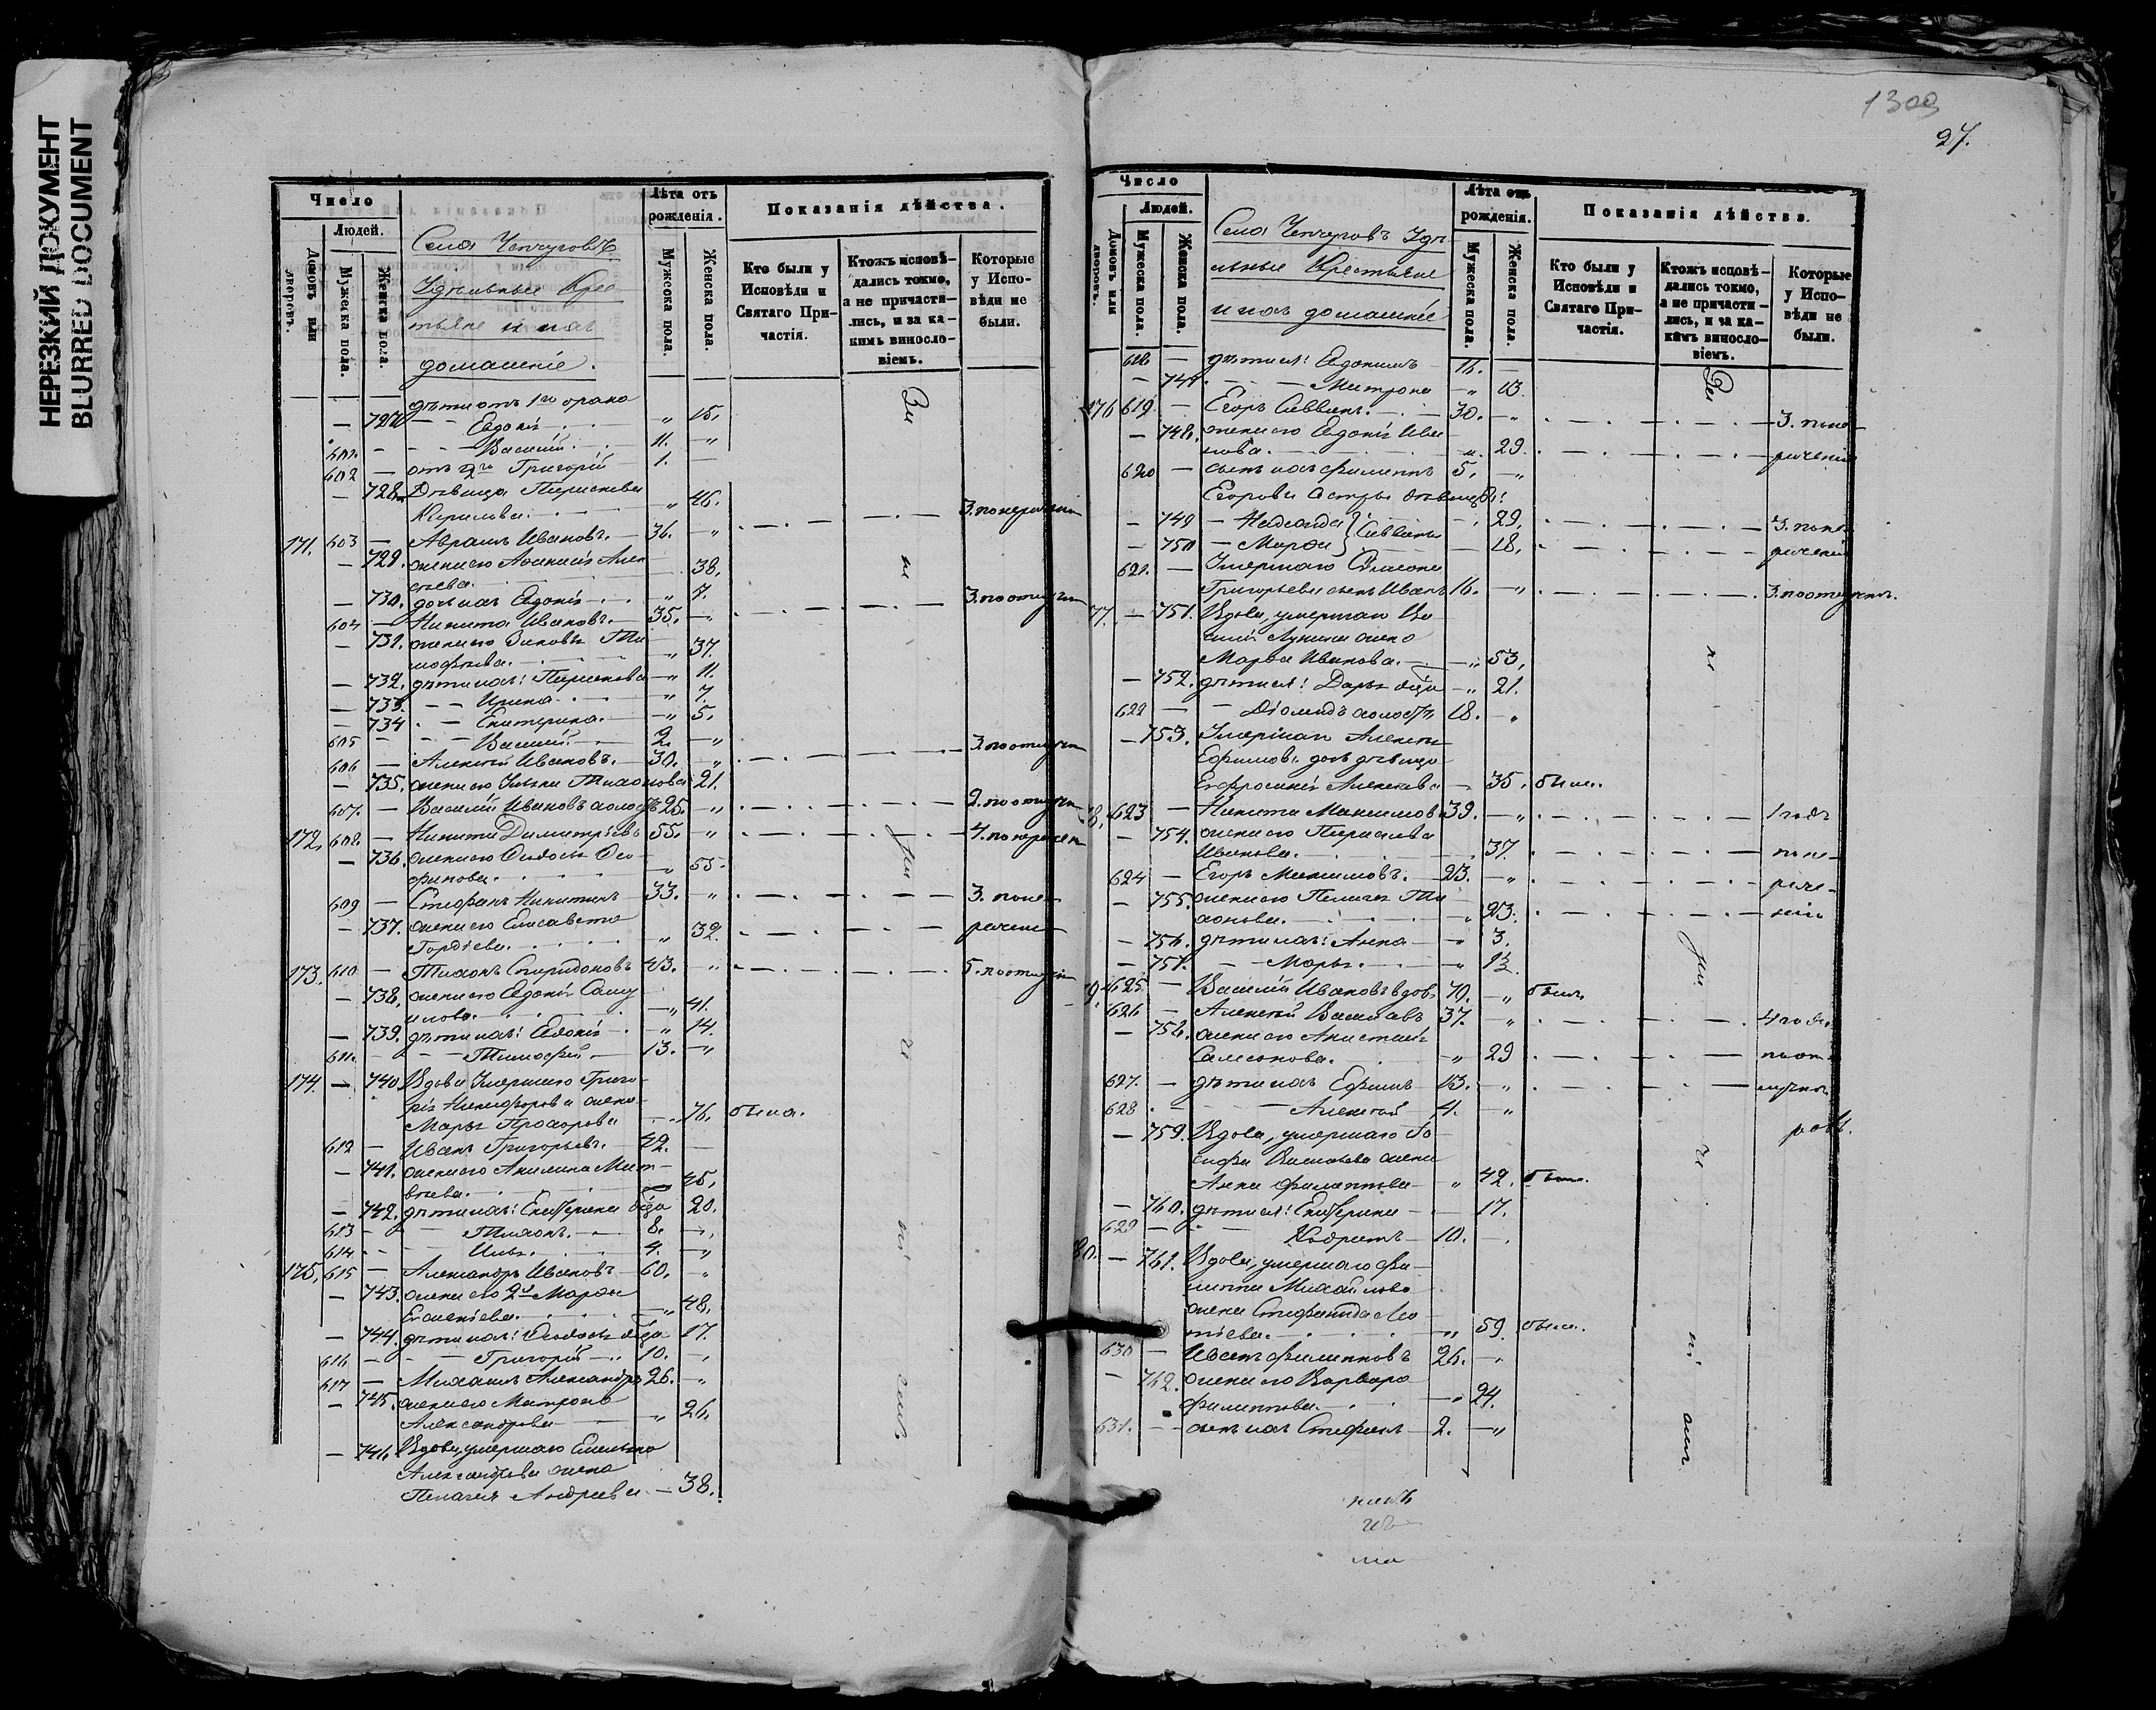 НЕРЕЗКИЙ ДОКУМЕНТ
BLURRED DOCUMENT
Число
Людей.
Домовъ или дворовъ.
Мужеска пола.
Женска пола.
Села Чепчуговъ
Удѣльные Крес
тьяне и ихъ
домашніе.
Лѣта отъ рожденія.
Мужеска пола.
Женска пола.
Показанія дѣйства.
Кто были у Исповѣди и Святаго Причастія.
Ктожъ исповѣдались токмо, а не причастились, и за какимъ винословіемъ.
Которые у Исповѣди не были.
дѣти отъ 1го брака
— 727 Евдокія „ 15.
601. — Василій 11. „
602 — отъ 2го Григорій 1. —
— 728. Дѣвица Параскева
Кирилова. „ 46.
171. 603 — Аврамъ Ивановъ. 36. „ 3. по нерадѣнію
— 729. жена его Афанасія Алек
сѣева. 38.
— 730. дочь ихъ Евдокія „ 7.
604 — Никита Ивановъ. 35. — 3. по отлучкѣ
— 731. жена его Зиновья Ти
мофѣева. „ 37.
— 732. дѣти ихъ: Параскева „ 11.
— 733. Ирина „ 7.
— 734 Екатерина. „ 5.
605 — Василій 2. „
606 — Алексѣй Ивановъ. 30. „ 3. по отлучкѣ
— 735. жена его Ульяна Тихонова 21.
607. — Василій Ивановъ холостъ 25. „ 2. по отлучкѣ
172. 608. — Никита Димитріевъ 55. „ 4. по нерадѣн
— 736. жена его Федосья Осо
фипова. „ 55.
609 — Стефанъ Никитинъ 33. „ 3. по не—
— 737. жена его Елисавета
Гордѣева. „ 32. радѣнію
173. 610 — Тихонъ Спиридоновъ 43. „ 5. по отлучкѣ
— 738. жена его Евдокія Саму
илова. „ 41.
— 739. дѣти ихъ: Евдокія „ 14.
611. — Тимофей 13. „
174. — 740 Вдова Умершаго Григо
рія Никифорова жена
Марья Прохорова „ 76. была.
612 — Иванъ Григорьевъ. 42. —
— 741. жена его Акилина Мат—
вѣева. 45.
— 742. дѣти ихъ: Екатерина дѣвица 20.
613 — Тихонъ. 8. „
614. — Илья. 4. „
175. 615 — Александръ Ивановъ 60. „
— 743. жена его 2я Марфа
Евгеніева. „ 48.
— 744. дѣти ихъ: Федосья дѣвица 17.
616 — Григорій 10. „
617 — Михаилъ Александръ 26. „
— 745. жена его Матрона
Александрова „ 26.
— 746. Вдова, умершаго Емельяна
Александрова жена
Пелагея Андреева — 38.
1309
27.
Число
Людей.
Домовъ или дворовъ.
Мужеска пола.
Женска пола.
Села Чепчуговъ Удѣ—
льные Крестьяне
и ихъ домашніе
Лѣта отъ рожденія.
Мужеска пола.
Женска пола.
Показанія дѣйства.
Кто были у Исповѣди и Святаго Причастія.
Ктожъ исповѣдались токмо, а не причастились, и за какимъ винословіемъ.
Которые у Исповѣди не были.
618 — дѣти ея: Евдокимъ 16. —
— 747. Матрона „ 13.
176 619 — Егоръ Саввинъ. 30. „ 3. по не—
— 748. жена его Евдокія Ива
нова. „ 29. радѣнію
620 — сынъ ихъ Филиппъ 5. „
Егорова сестры дѣвицы:
— 749 Надежда „ 29. 3. по не—
— 750 Марфа Саввины — 18. радѣнію
621. — Умершаго Симеона
Григорьева сынъ Иванъ 16. „ 3. по отлучкѣ.
77. — 751. Вдова, умершаго Ва
силія Лукина жена
Марфа Иванова. „ 53.
— 752. дѣти ея: Дарья дѣвица „ 21.
622 — Діомидъ холостъ 18. „
— 753. Умершаго Алексѣя
Ефимова дочь дѣвица
Евфросинія Алексѣева — 35. была.
78. 623 — Никита Максимовъ 39. „ 1 годъ
— 754. жена его Параскева
Иванова. 37. по не—
624 — Егоръ Максимовъ. 23. „ радѣ—
— 755. жена его Пелагея Ти
хонова. „ 23. нію
— 756. дѣти ихъ: Анна „ 3.
— 757. Марья. „ 1½
79. 625. — Василій Ивановъ вдов. 70. „ былъ
626 — Алексѣй Васильевъ 37. „ 4 года
— 758. жена его Анастасія
Самсонова. „ 29 по от—
627. — дѣти ихъ Ефимъ 13. „ лучкѣ
628 — Алексѣй 4. „
— 759. Вдова, умершаго Іо
сифа Васильева жена
Анна Филиппова „ 42. была.
— 760. дѣти ея: Екатерина — 17.
629 — Кодратъ 10. „
80. — 761. Вдова, умершаго Фи—
липпа Михайлова
жена Стефанида Лео
нтіева. „ 59. была.
630 — Иванъ Филипповъ 26. „
— 762. жена его Варвара
Филиппова. „ 24.
631. — сынъ ихъ Стефанъ 2. „